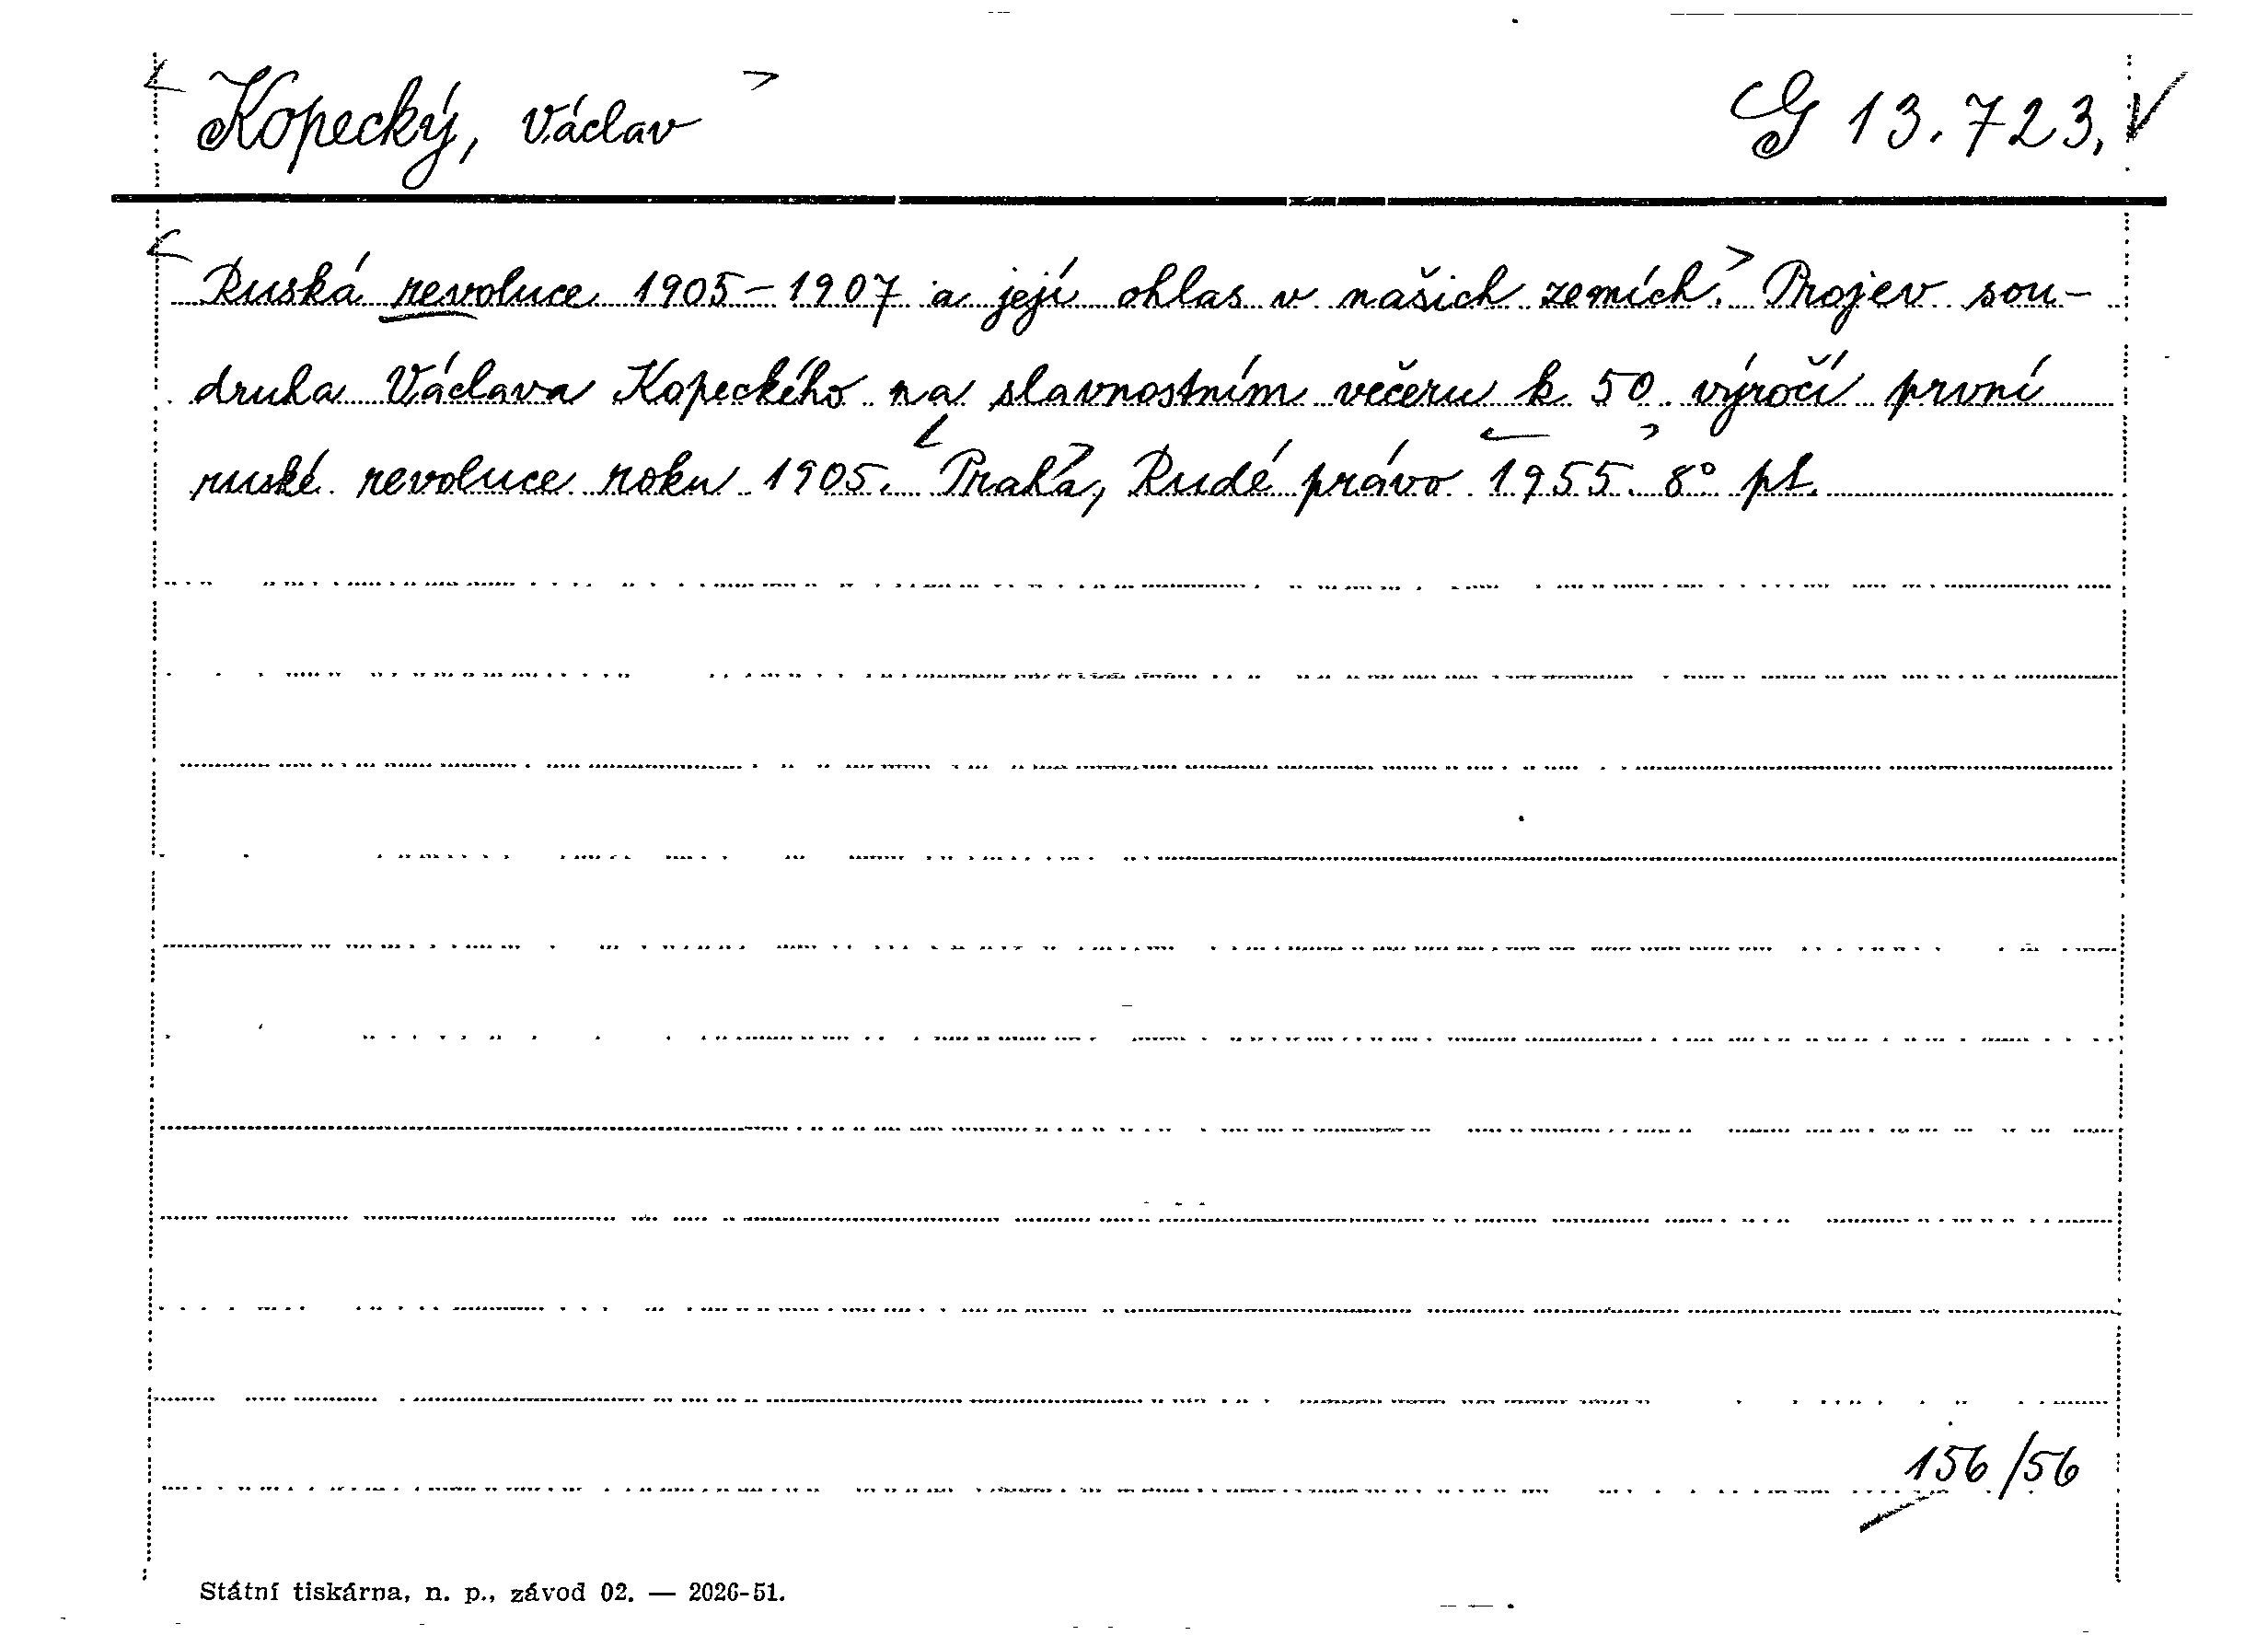 Kopecký, Václav
G 13.723.
Ruská revoluce 1905-1907 a její ohlas v našich zemích. Projev sou-
druha Václava Kopeckého na slavnostním večeru k 50. výročí první
ruské revoluce roku 1905. Praha, Rudé právo 1955. 8° pl.
156/56
Státní tiskárna, n. p., závod 02. — 2026-51.